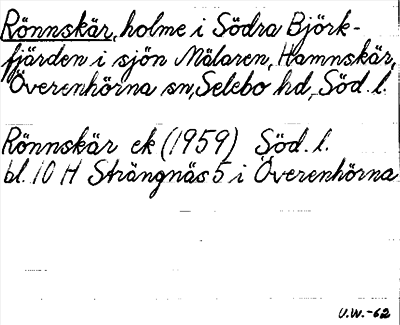 Rönnskär, holme i Södra Björk-
fjärden i sjön Mälaren, Hamnskär,
Överenhörna sn, Selebo hd, Söd. l.
Rönnskär ek (1959) Söd. l.
bl. 10 H Strängnäs 5 i Överenhörna
U.W.-62